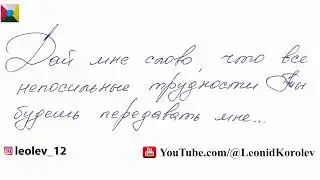 Дай мне слово, что все
непосильные трудности Ты
будешь передавать мне...
leolev_12
YouTube.com/@LeonidKorolev